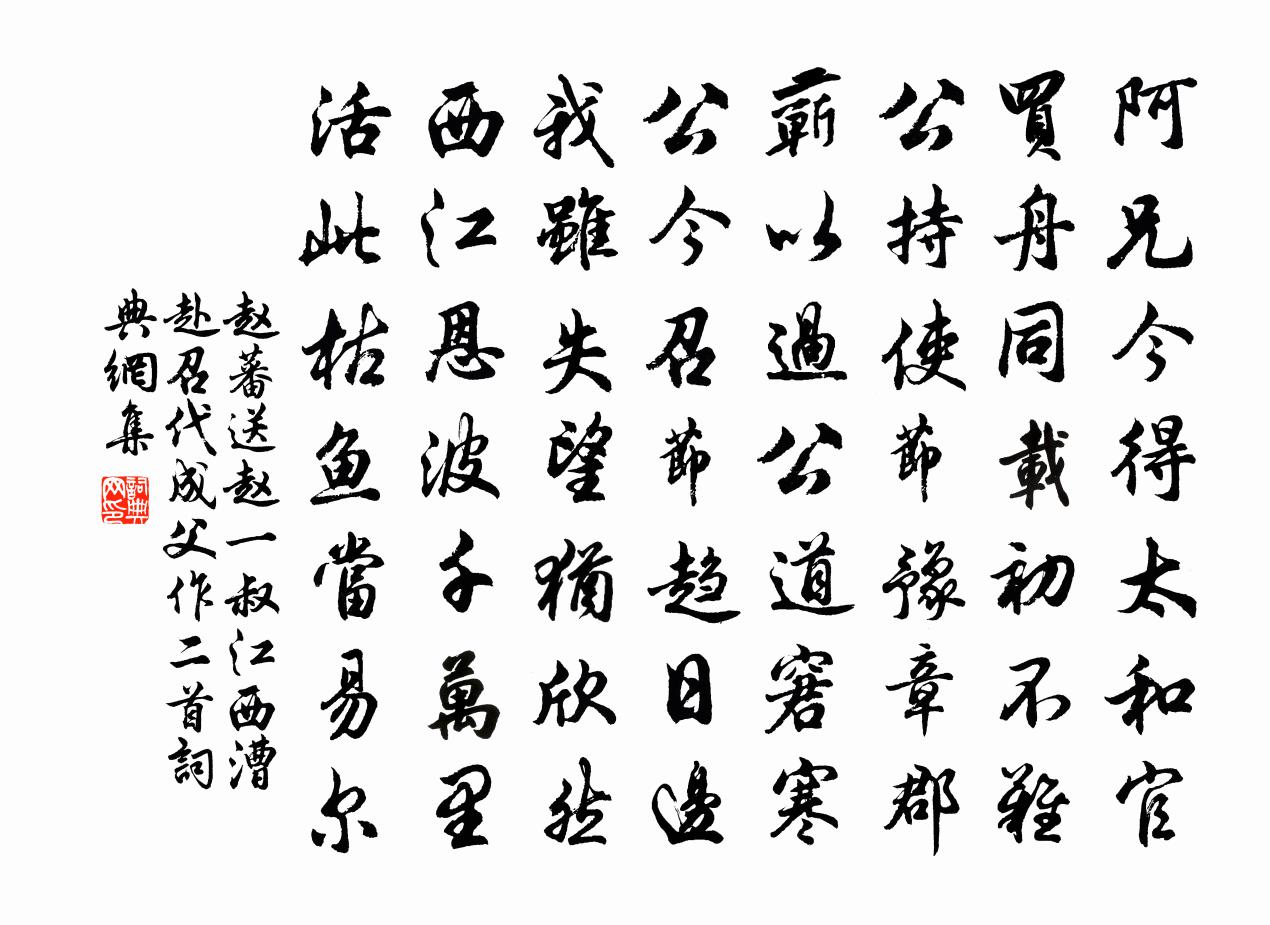 阿兄今得太和官
買舟同載初不難
公持使節豫章郡
蘄以過公道窘寒
公今召節趨日邊
我雖失望猶欣然
西江恩波千萬里
活此枯鱼當易尔
赵蕃送赵一叔江西漕
赴召代成父作二首詞
典網集
詞典网印